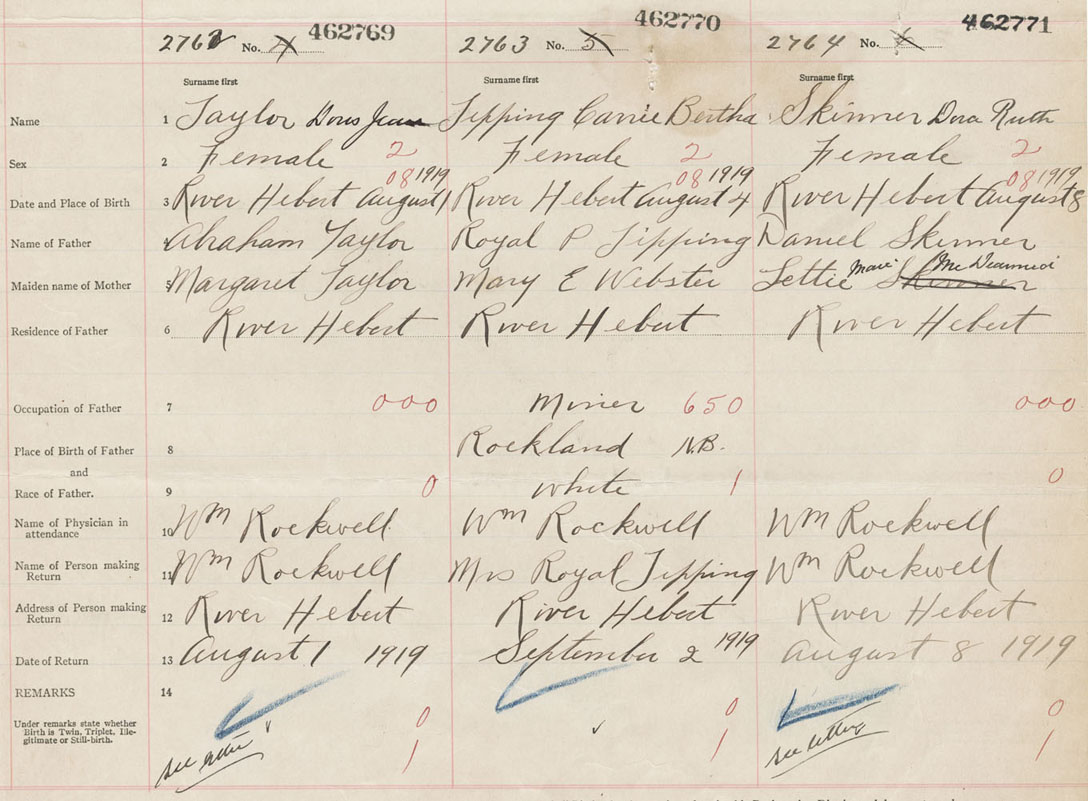 462769 462770 462771
2762 No. 4 2763 No. 5 2764 No. 6
Surname first Surname first Surname first
Name 1 Taylor Doris Jean Tipping Carrie Bertha Skinner Dora Ruth
Sex 2 Female 2 Female 2 Female 2
08 1919 08 1919 08 1919
Date and Place of Birth 3 River Hebert August 1 River Hebert August 4 River Hebert August 8
Name of Father 4 Abraham Taylor Royal P Tipping Daniel Skinner
Maiden name of Mother 5 Margaret Taylor Mary E Webster Lettie Skinner
Residence of Father 6 River Hebert River Hebert River Hebert
Occupation of Father 7 000 Miner 650 000
Place of Birth of Father 8 Rockland N.B.
and
Race of Father. 9 0 White 1 0
Name of Physician in
attendance 10 Wm Rockwell Wm Rockwell Wm Rockwell
Name of Person making
Return 11 Wm Rockwell Mrs Royal Tipping Wm Rockwell
Address of Person making
Return 12 River Hebert River Hebert River Hebert
Date of Return 13 August 1 1919 September 2 1919 August 8 1919
REMARKS 14
Under remarks state whether 0 0 0
Birth is Twin, Triplet, Ille-
gitimate or Still-birth.
1 1 1
see see